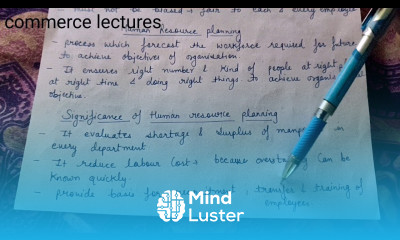 must not be biased & fair to each & every employee
commerce lectures
Human Resource planning
- process which forecast the workforce required for future
to achieve objectives of organisation
- It ensures right number & kind of people at right
at right time & doing right things to achieve
objective.
Significance of Human resource planning
- It evaluates shortage & surplus of
every department
- It reduce labour cost because overstaffing can be
known quickly
- provide basis for , transfer & training of
employees
Mind
Luster